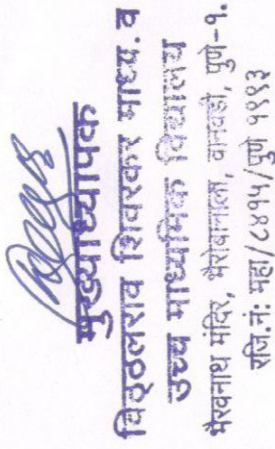 मुख्याध्यापक
विठ्ठलराव शिवरकर माध्य. व
उच्च माध्यमिक विद्यालय
भैरवनाथ मंदिर, भैरोबानाला, वानवडी, पुणे-१.
रजि.नं: महा/८४१५/पुणे १९९३